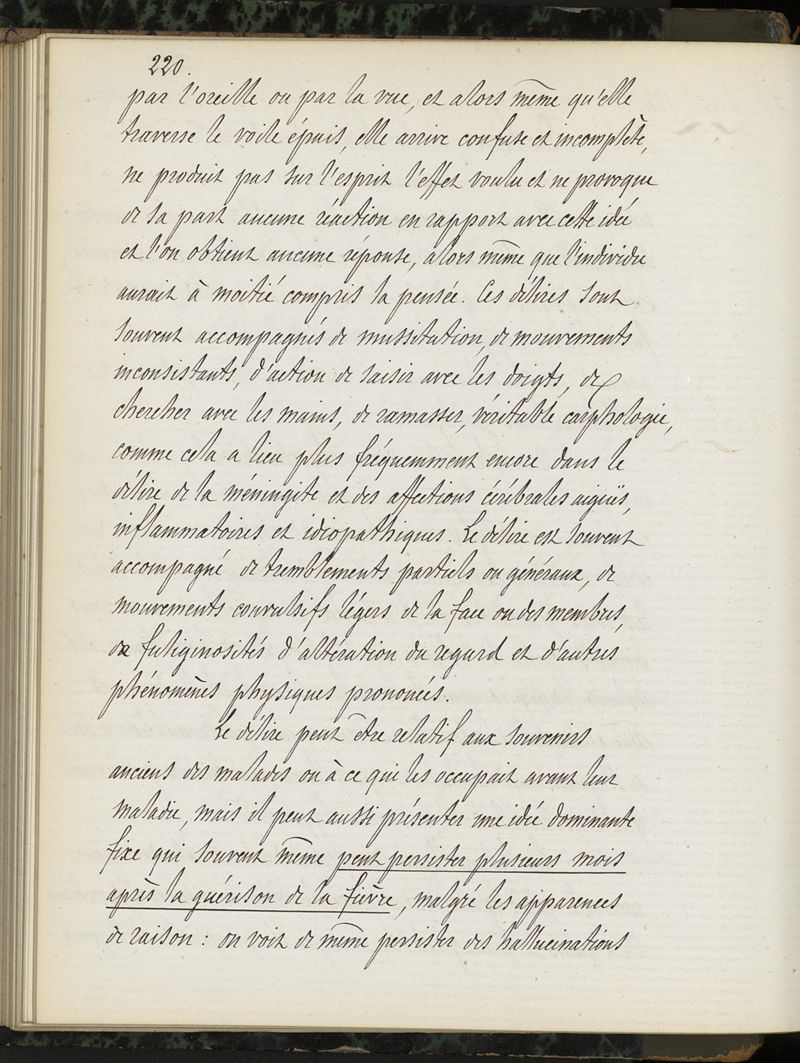 220.
par l'oreille ou par la vue, et alors même qu'elle
traverse le voile épais, elle arrive confuse et incomplète,
ne produit pas sur l'esprit l'effet voulu et ne provoque
de sa part aucune réaction en rapport avec cette idée
et l'on obtient aucune réponse, alors même que l'individu
aurait à moitié compris la pensée. Ces délires sont
souvent accompagnés de mussitation, de mouvements
inconsistants, d'action de saisir avec les doigts, de
chercher avec les mains, de ramasser, véritable carphologie,
comme cela a lieu plus fréquemment encore dans le
délire de la méningite et des affections cérébrales aiguës,
inflammatoires et idiopathiques. Le délire est souvent
accompagné de tremblements partiels ou généraux, de
mouvements convulsifs légers de la face ou des membres,
de fuliginosités d'altération du regard et d'autres
phénomènes physiques prononcés.
Le délire peut être relatif aux souvenirs
anciens des malades ou à ce qui les occupait avant leur
maladie, mais il peut aussi présenter une idée dominante
fixe qui souvent même peut persister plusieurs mois
après la guérison de la fièvre, malgré les apparences
de raison : on voit de même persister des hallucinations